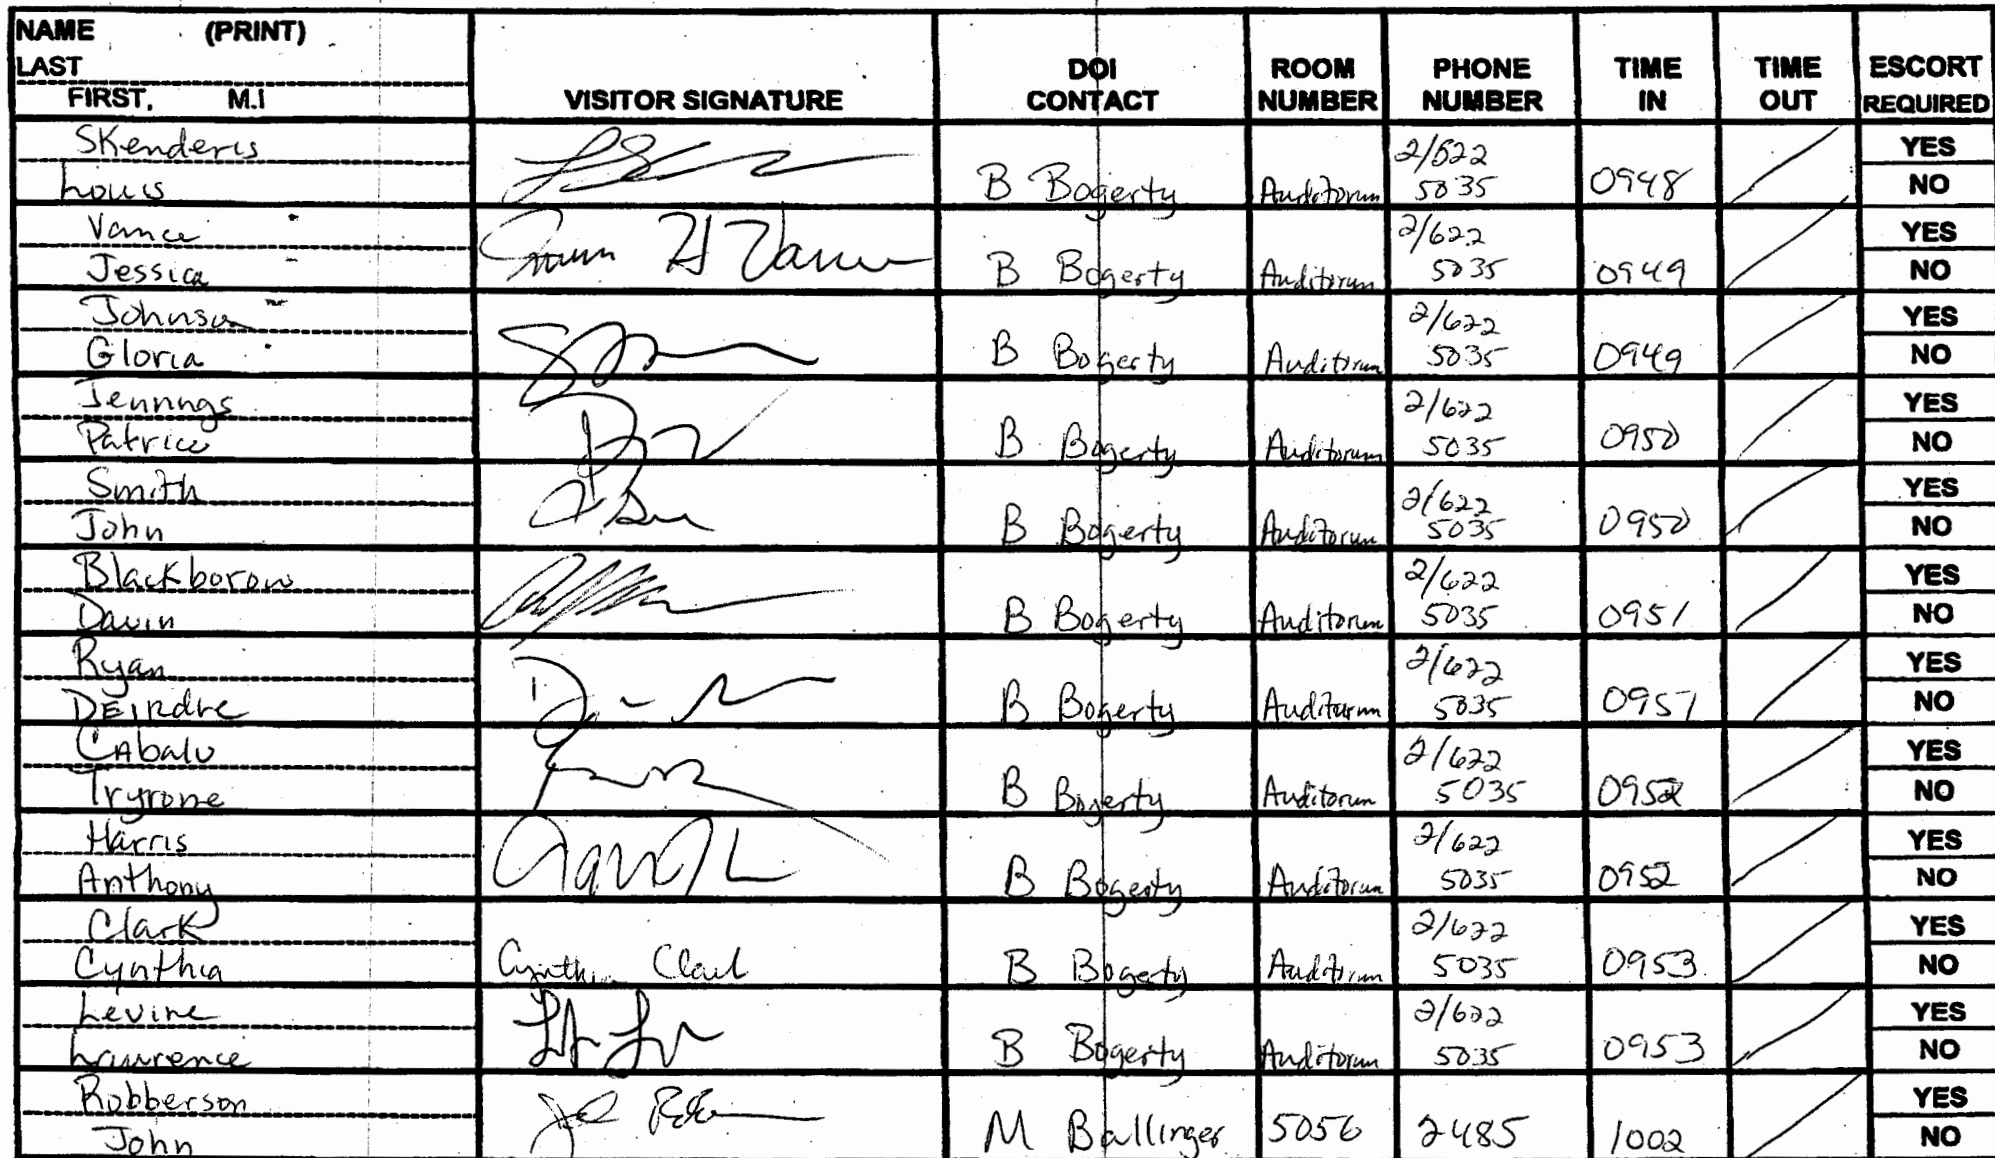 NAME (PRINT)
LAST
FIRST, M.I
VISITOR SIGNATURE
DOI CONTACT
ROOM NUMBER
PHONE NUMBER
TIME IN
TIME OUT
ESCORT REQUIRED
Skenderis
Louis
B Bogerty Auditorum 2/622 5035 0948
YES
NO
Vance
Jessica
B Bogerty Auditorum 2/622 5035 0949
YES
NO
Johnson
Gloria
B Bogerty Auditorum 2/622 5035 0949
YES
NO
Jennngs
Patrice
B Bogerty Auditorum 2/622 5035 0950
YES
NO
Smith
John
B Bogerty Auditorum 2/622 5035 0950
YES
NO
Blackborow
Davin
B Bogerty Auditorum 2/622 5035 0951
YES
NO
Ryan
DEirdre
B Bogerty Auditorum 2/622 5035 0951
YES
NO
CAbalu
Tryrone
B Bogerty Auditorum 2/622 5035 0952
YES
NO
Harris
Anthony
B Bogerty Auditorum 2/622 5035 0952
YES
NO
Clark
Cynthia
Cynthia Clark B Bogerty Auditorum 2/622 5035 0953
YES
NO
Levine
Lawrence
B Bogerty Auditorum 2/622 5035 0953
YES
NO
Robberson
John
M Ballinger 5056 2485 1002
YES
NO